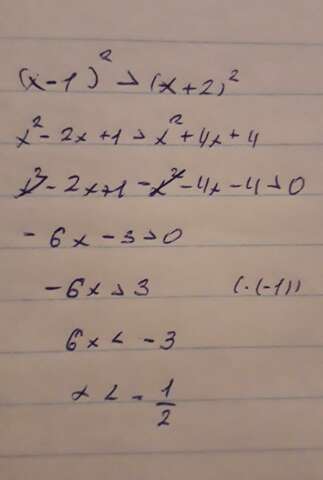 (x-1)² > (x+2)²
x² - 2x + 1 > x² + 4x + 4
x² - 2x + 1 - x² - 4x - 4 > 0
- 6x - 3 > 0
- 6x > 3 (·(-1))
6x < - 3
x < - 1/2